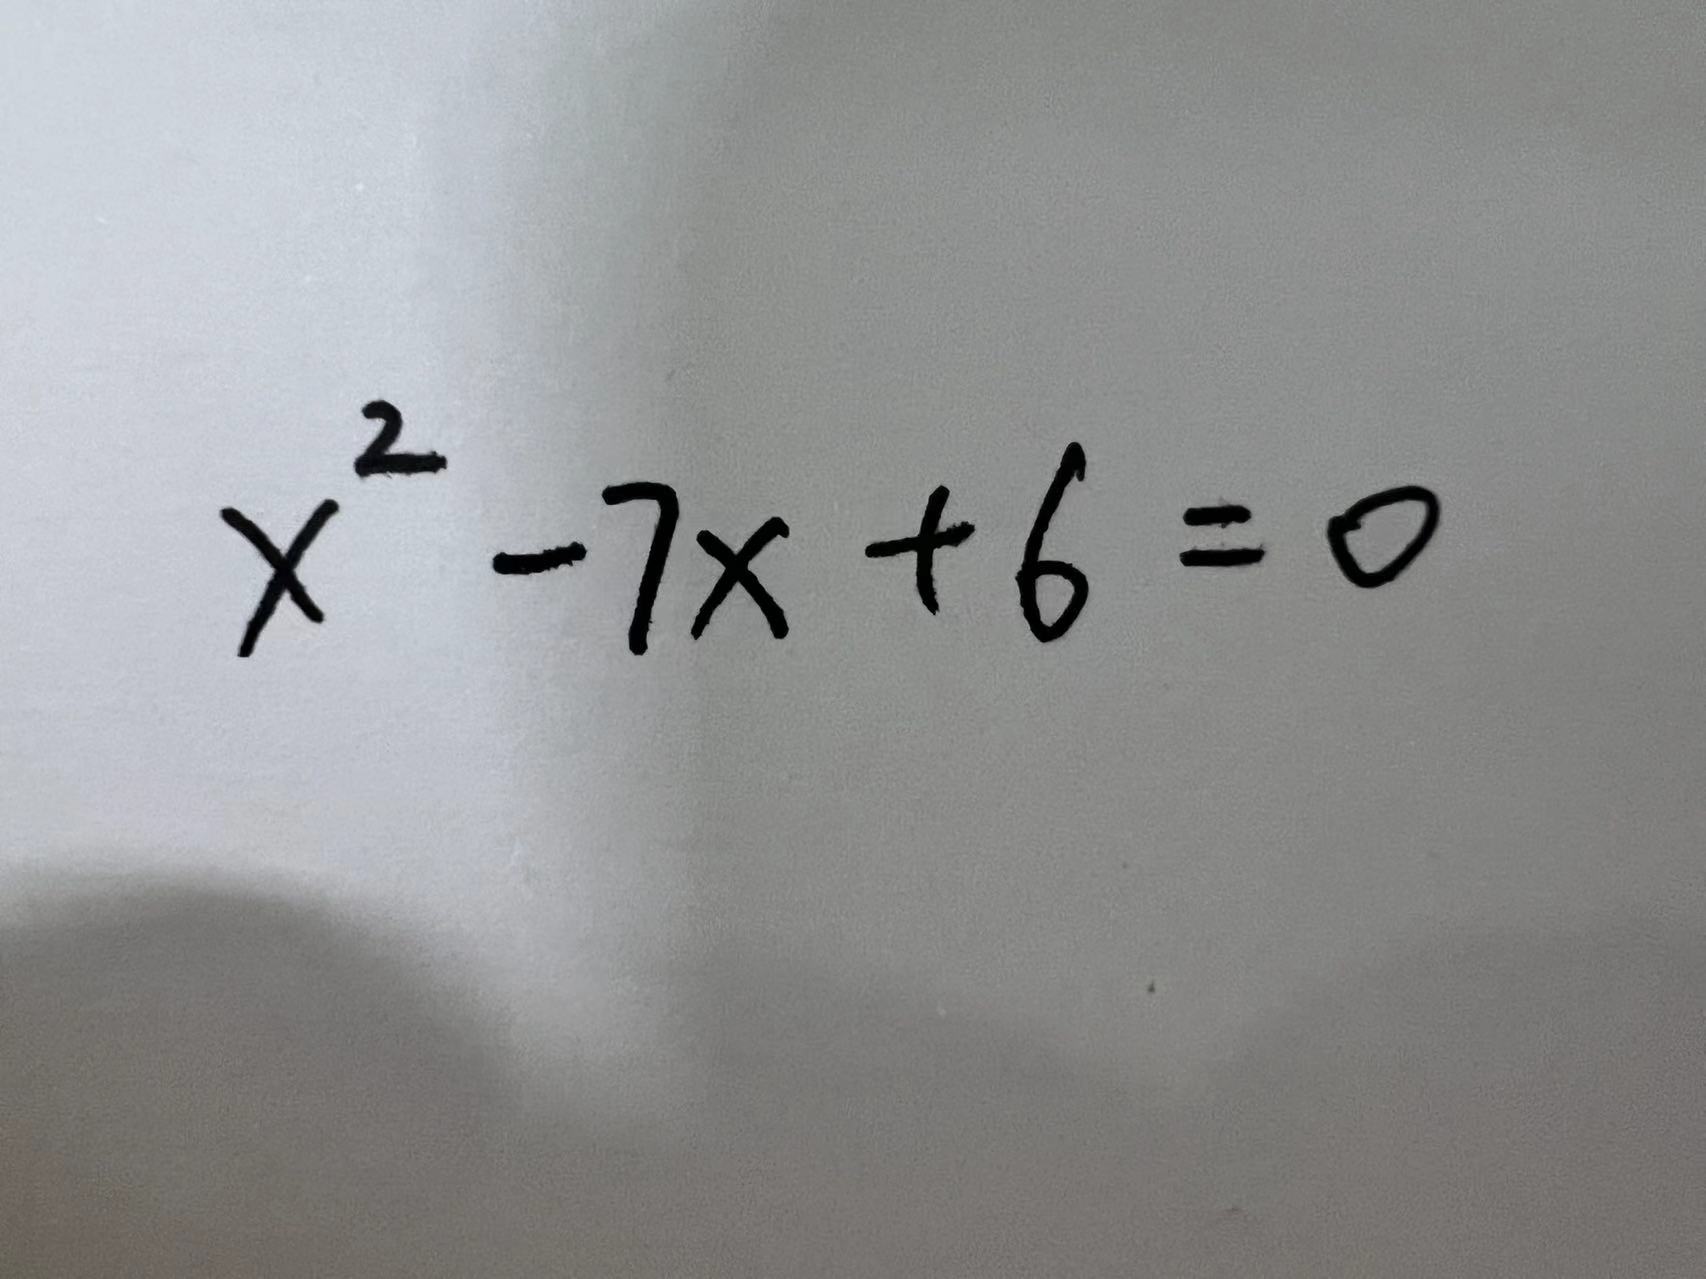 x² - 7x + 6 = 0